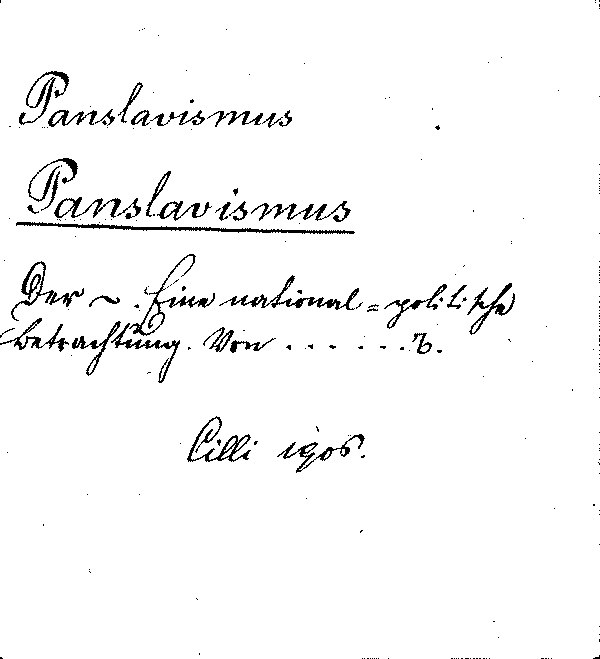 Panslavismus
Panslavismus
Der ~. Eine national=politische
Betrachtung. Von . . . . . . r.
Cilli 1905.